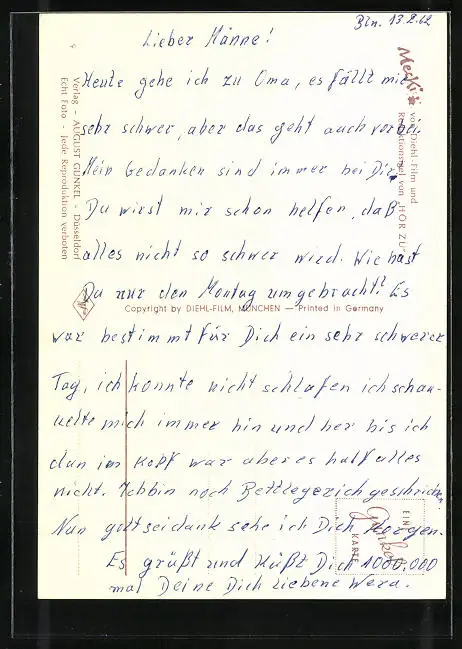 Bln. 13.2.62
Lieber Männe!
Heute gehe ich zu Oma, es fällt mir
sehr schwer, aber das geht auch vorbei.
Mein Gedanken sind immer bei Dir.
Du wirst mir schon helfen, daß
alles nicht so schwer wird. Wie hast
Du nur den Montag umgebracht? Es
war bestimmt für Dich ein sehr schwerer
Tag, ich konnte nicht schlafen ich schau-
kelte mich immer hin und her bis ich
dan im Kopf war aber es half alles
nicht. Ich bin noch
Nun gottseidank sehe ich Dich morgen.
Es grüßt und küßt Dich 1000.000
mal Deine Dich liebene Wera.
Mecki
von Diehl-Film und
Redaktionsigel von „HÖR ZU"
Verlag - AUGUST GUNKEL - Düsseldorf
Echt Foto - Jede Reproduktion verboten
Copyright by DIEHL-FILM, MÜNCHEN — Printed in Germany
EINE
Gunkel
KARTE